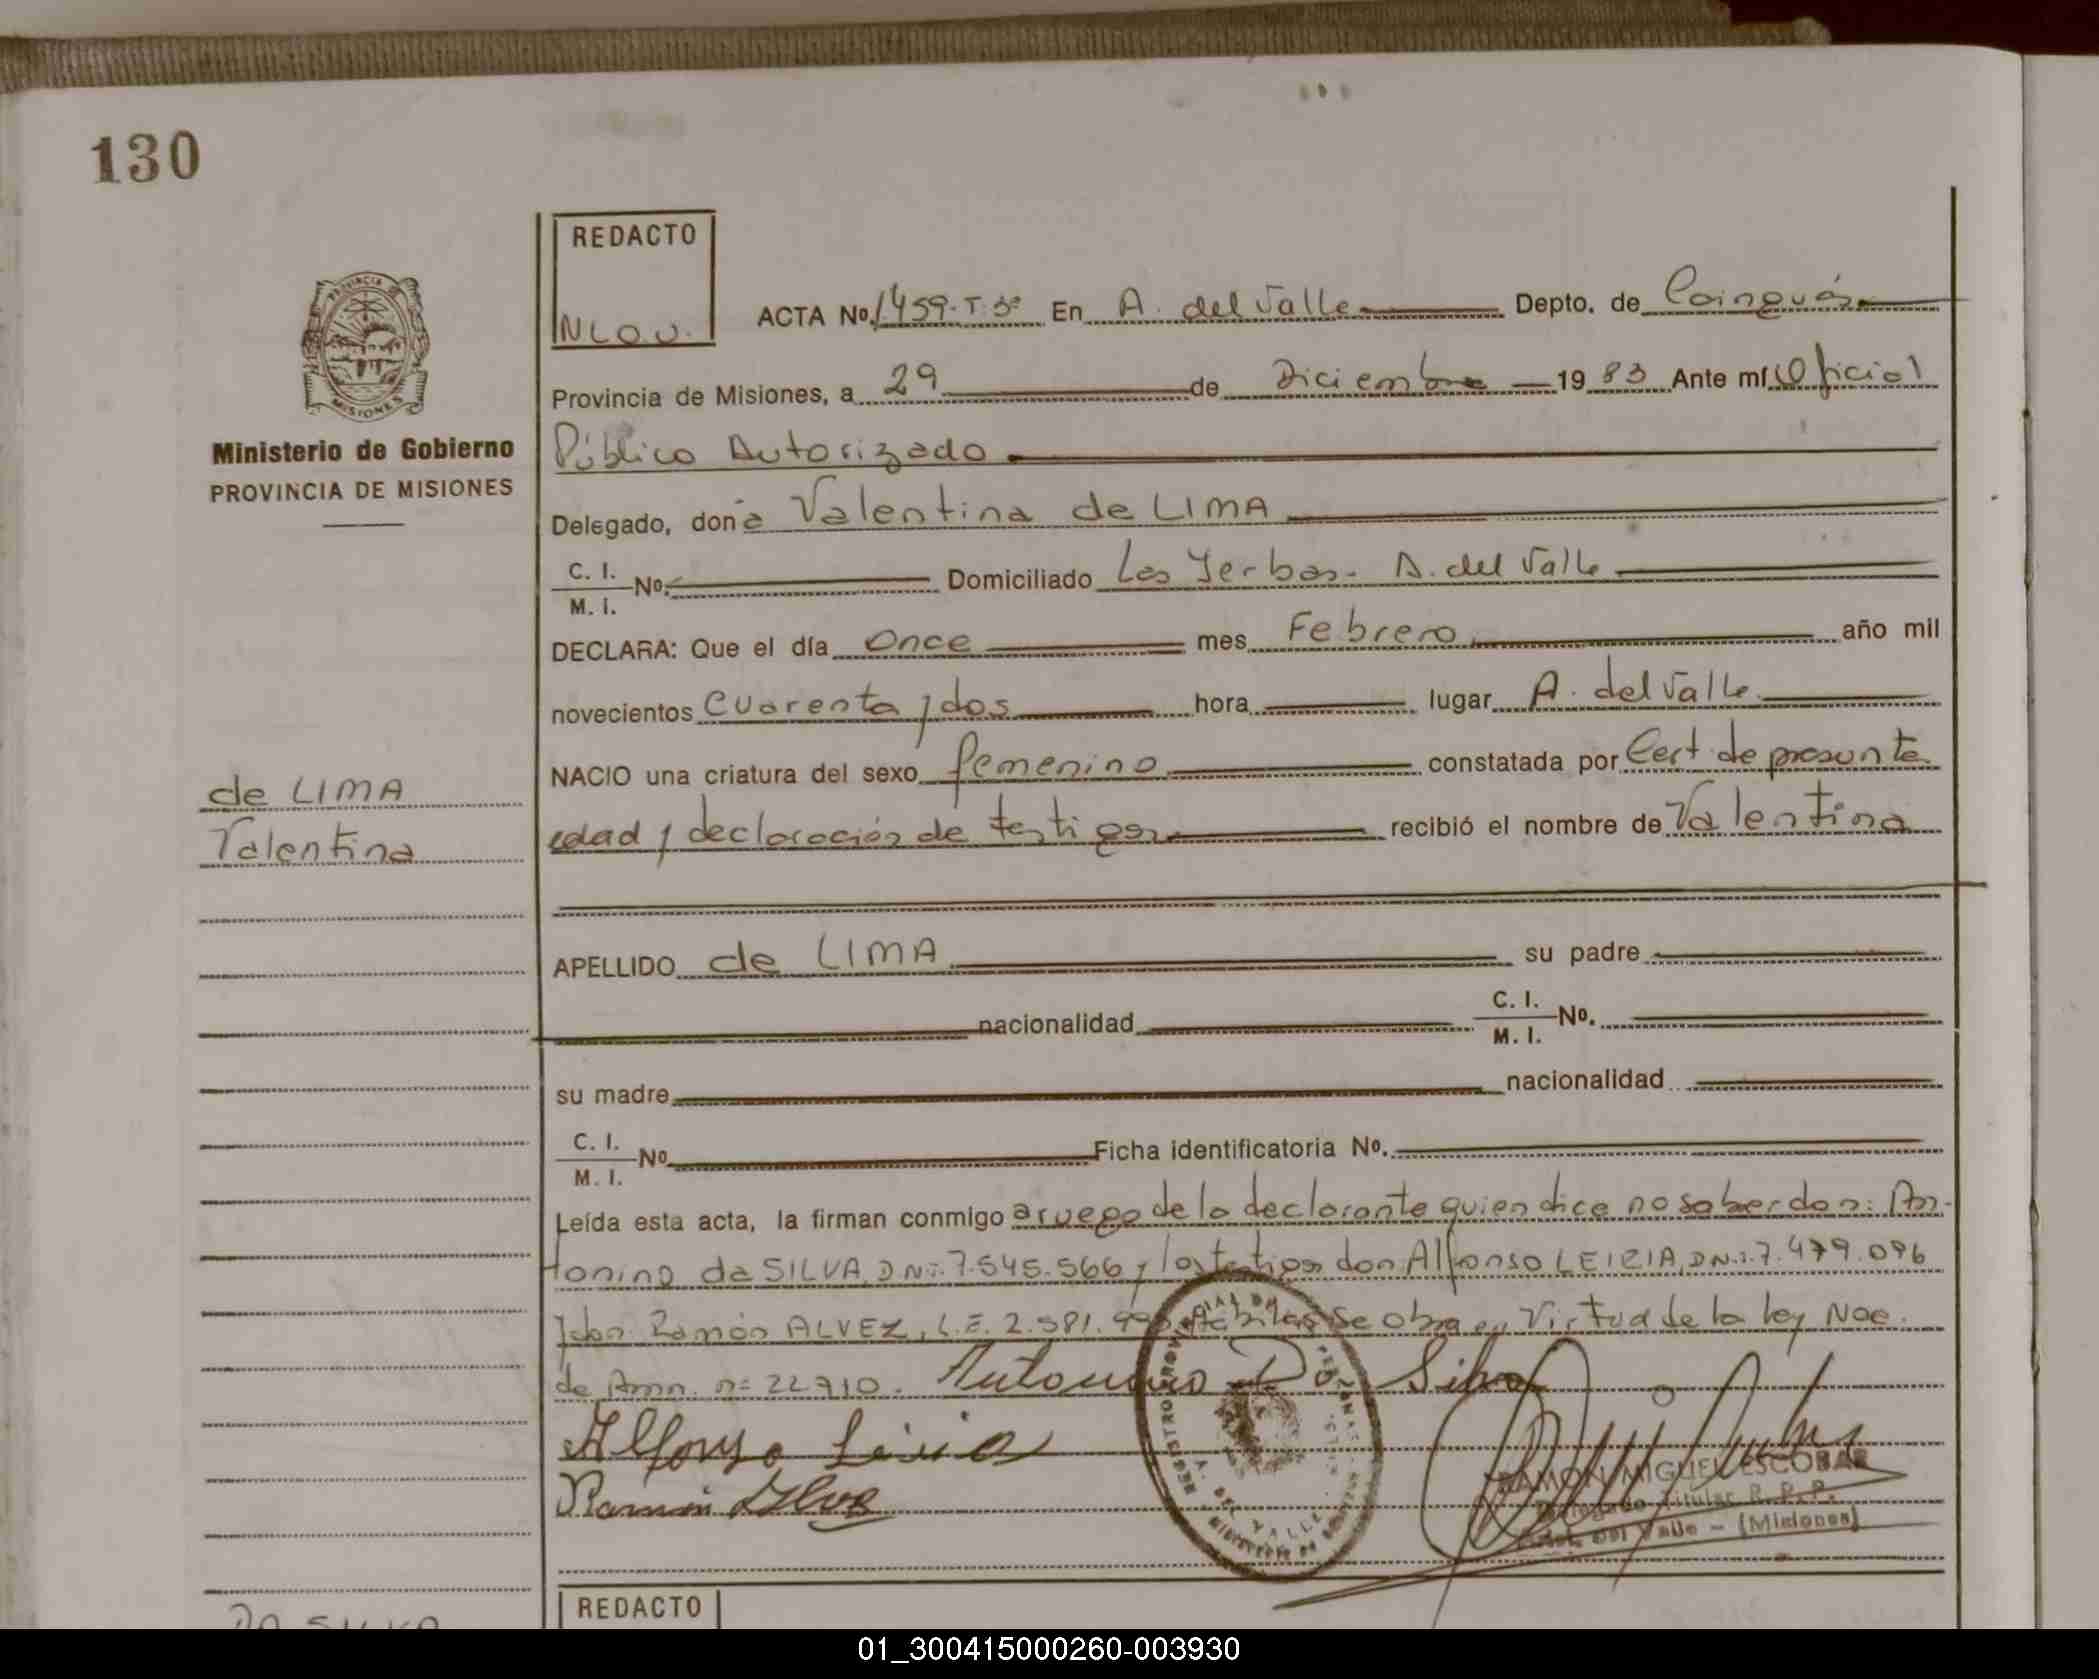 130
REDACTO
NLOU.
ACTA Nº 1459-T-3º En A. del Valle Depto. de Cainguás
Provincia de Misiones, a 29 de Diciembre 1983 Ante mí Oficial
Ministerio de Gobierno
PROVINCIA DE MISIONES
Público Autorizado
Delegado, don a Valentina de LIMA
C. I.
M. I. Nº. Domiciliado Las Yerbas. A. del Valle
DECLARA: Que el día Once mes Febrero año mil
novecientos cuarenta y dos hora lugar A. del Valle
NACIO una criatura del sexo femenino constatada por Cert. de presunta
de LIMA
Valentina
edad y declaración de testigos recibió el nombre de Valentina
APELLIDO de LIMA su padre
nacionalidad C. I.
M. I. Nº.
su madre nacionalidad
C. I.
M. I. Nº Ficha identificatoria Nº.
Leída esta acta, la firman conmigo a ruego de la declarante quien dice no saber don: An-
tonino da SILVA, DNI: 7.545.566 y los testigos don Alfonso LEIZIA, DNI: 7.479.096
y don Ramón ALVEZ, L.E. 2.581. Se obra en Virtud de la ley Nac.
de Amn. nº 22710. Antonino Da Silva
Alfonso
Ramón
REGISTRO PROVINCIAL DE PERSONAS
A. DEL VALLE
RAMON MIGUEL ESCOBAR
Delegado Titular R. P. P.
Del Valle - (Misiones)
REDACTO
DA SILVA
01_300415000260-003930